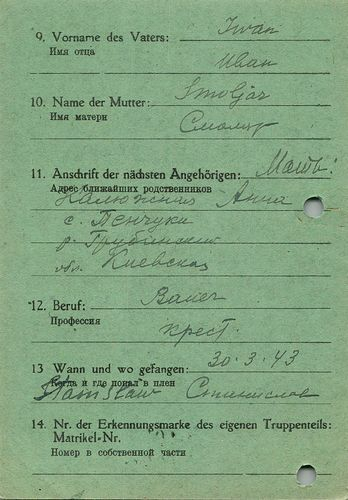 9. Vorname des Vaters: Iwan
Имя отца
Иван
10. Name der Mutter: Smoljar
Имя матери
Смоляр
11. Anschrift der nächsten Angehörigen: Мать:
Адрес ближайших родственников
Калюжная Анна
с. Пенчуки
р. Грубинский
обл. Киевская
12. Beruf: Bauer
Профессия
крест.
13 Wann und wo gefangen: 30.3.43
Когда и где попал в плен
Stanislaw Станислав
14. Nr. der Erkennungsmarke des eigenen Truppenteils:
Matrikel-Nr.
Номер в собственной части